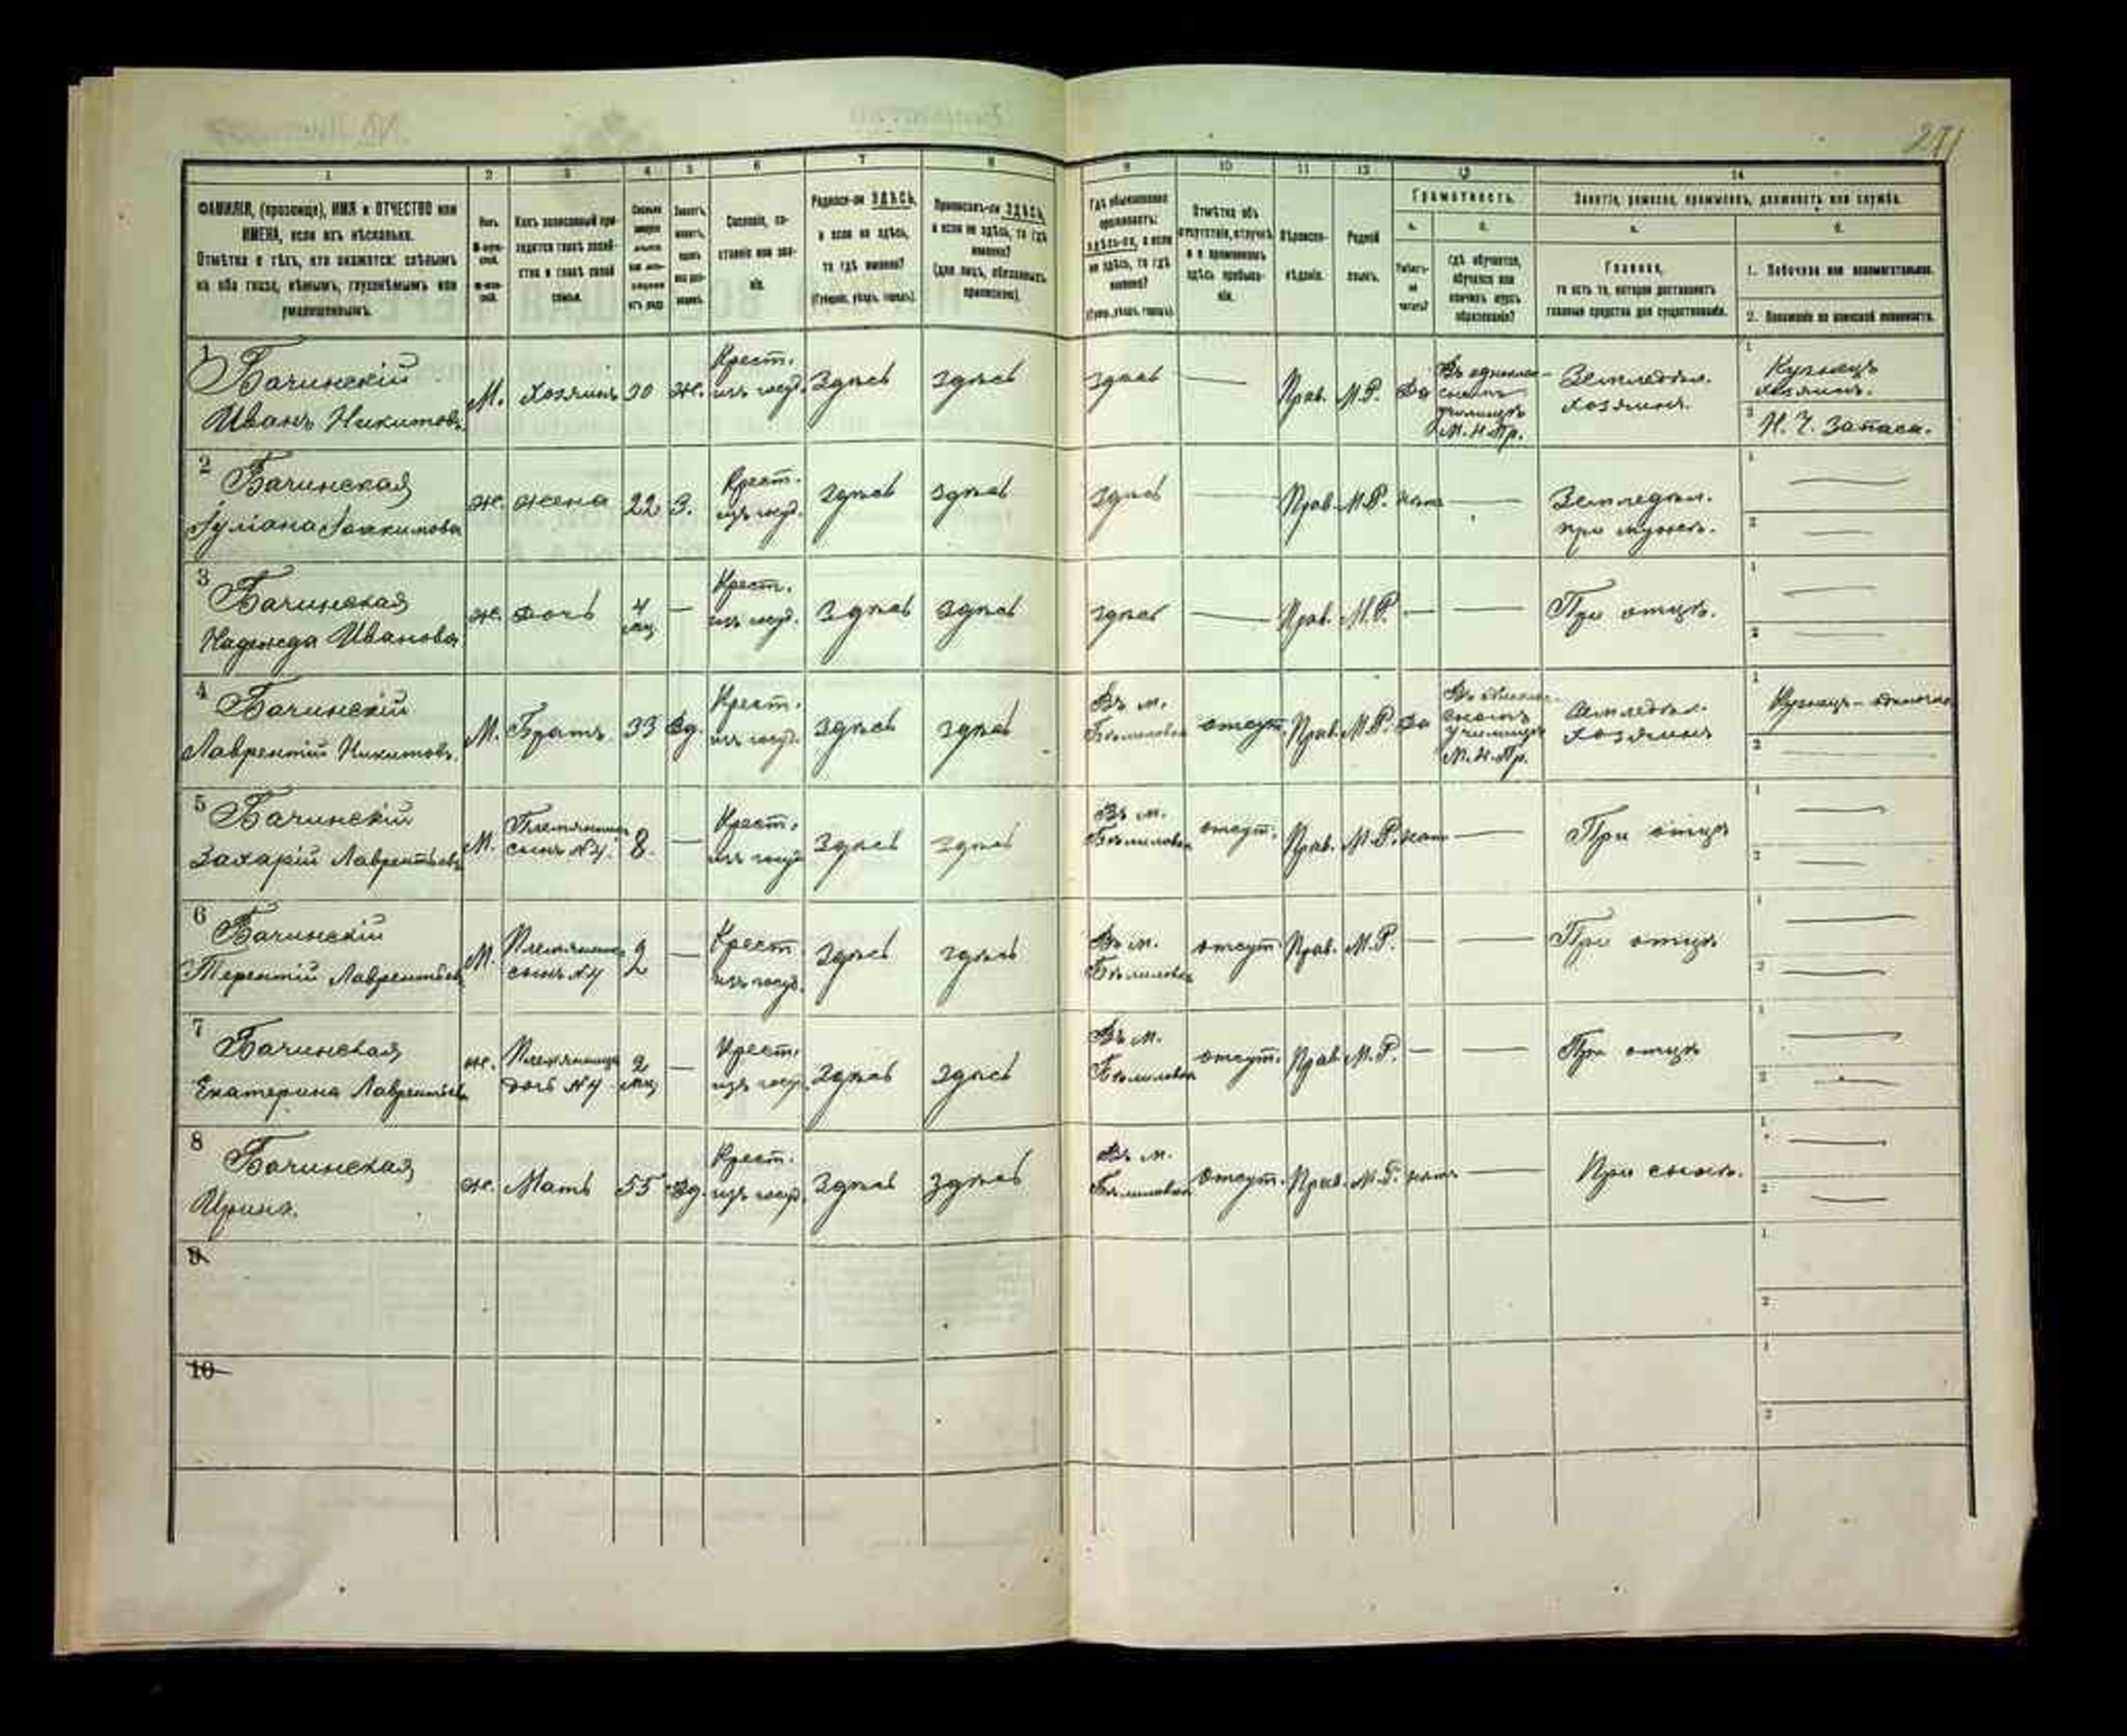 271
1 2 3 4 5 6 7 8 9 10 11 12 13 14
ФАМИЛІЯ, (прозвище), ИМЯ и ОТЧЕСТВО или
ИМЕНА, если ихъ нѣсколько.
Отмѣтка о тѣхъ, кто окажется: слѣпымъ
на оба глаза, нѣмымъ, глухонѣмымъ или
умалишеннымъ.
Полъ.
Какъ записанный при-
ходится главѣ хозяй-
ства и главѣ своей
семьи.
Сословіе, со-
стояніе или зва-
ніе.
Родился-ли ЗДѢСЬ,
а если не здѣсь,
то гдѣ именно?
(Губернія, уѣздъ, городъ).
Приписанъ-ли ЗДѢСЬ,
а если не здѣсь, то гдѣ
именно?
(для лицъ, обязанныхъ
припискою).
Гдѣ обыкновенно
проживаетъ:
здѣсь-ли, а если
не здѣсь, то гдѣ
именно?
(Губ., уѣздъ, городъ).
Отмѣтка объ
отсутствіи, отлучкѣ
и о временномъ
здѣсь пребыва-
ніи.
Вѣроиспо-
вѣданіе.
Родной
языкъ.
Грамотность.
а. б.
Умѣетъ-
ли
читать?
гдѣ обучается,
обучался или
кончилъ курсъ
образованія?
Занятіе, ремесло, промыселъ, должность или служба.
а. б.
Главное,
то есть то, которое доставляетъ
главныя средства для существованія.
1. Побочное или вспомогательное.
2. Положеніе по воинской повинности.
1 Бачинскій
Иванъ Никитовъ
М. Хозяинъ 30 Ж. Крест. изъ госуд. Здѣсь здѣсь здѣсь — Прав. М.Р. Да
Въ однокла-
сномъ
училищѣ
М.Н.Пр.
Земледѣл.
хозяинъ.
1 Кузнецъ
хозяинъ.
2 Н. Ч. Запаса.
2 Бачинская
Іуліана Іоакимова
ж. жена 22 З. Крест. изъ госуд. Здѣсь здѣсь здѣсь — Прав. М.Р. нѣтъ —
Земледѣл.
при мужѣ.
1 —
2 —
3 Бачинская
Надежда Иванова
ж. дочь 4 мц. — Крест. изъ госуд. Здѣсь здѣсь здѣсь — Прав. М.Р. — — При отцѣ.
1 —
2 —
4 Бачинскій
Лаврентій Никитовъ.
М. Братъ 33 вд. Крест. изъ госуд. Здѣсь здѣсь Въ м. отсут. Прав. М.Р. Да
училищѣ
М.Н.Пр.
Земледѣл.
хозяинъ
1 Кузнецъ – одиночка
2 —
5 Бачинскій
Захарій Лаврентьевъ
М. Племянникъ сынъ №4. 8. — Крест. изъ госуд. Здѣсь здѣсь Въ м. отсут. Прав. М.Р. нѣтъ — При отцѣ
1 —
2 —
6 Бачинскій
Терентій Лаврентьевъ
М. Племянникъ сынъ №4 2 — Крест. изъ госуд. Здѣсь здѣсь Въ м. отсут. Прав. М.Р. — — При отцѣ
1 —
2 —
7 Бачинская
Екатерина Лаврентьева
ж. Племянница дочь №4 2 мц — Крест. изъ госуд. Здѣсь здѣсь Въ м. отсут. Прав. М.Р. — — При отцѣ
1 —
2 —
8 Бачинская
Ирина.
ж. Мать 55 вд. Крест. изъ госуд. Здѣсь здѣсь Въ м. отсут. Прав. М.Р. нѣтъ — При сынѣ.
1 —
2 —
9
1
2
10
1
2